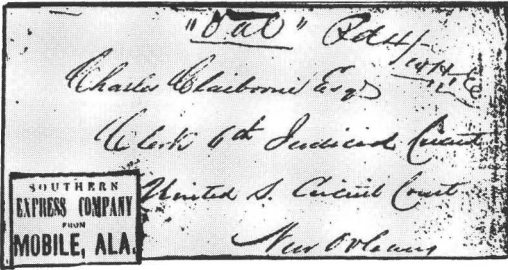 "Val" Pd 4/-
W H E
Charles Claiborne Esqr
Clerk 6th Judicial Circuit
United S. Circuit Court
New Orleans
SOUTHERN
EXPRESS COMPANY
FROM
MOBILE, ALA.